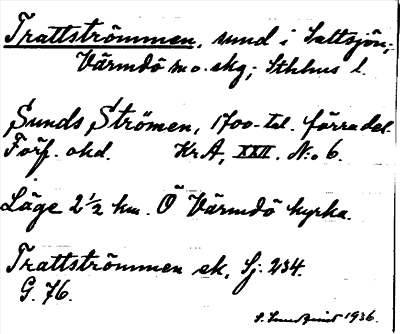 Trattströmmen, sund i Saltsjön;
Värmdö sn o. skg; Sthlms l.
Sunds Strömen, 1700-tal. förra del.
Förf. okd. KrA, XXII. N:o 6.
Läge 2½ km. Ö Värmdö kyrka.
Trattströmmen ek. Sj. 234.
G. 76.
S. Lundqvist 1936.